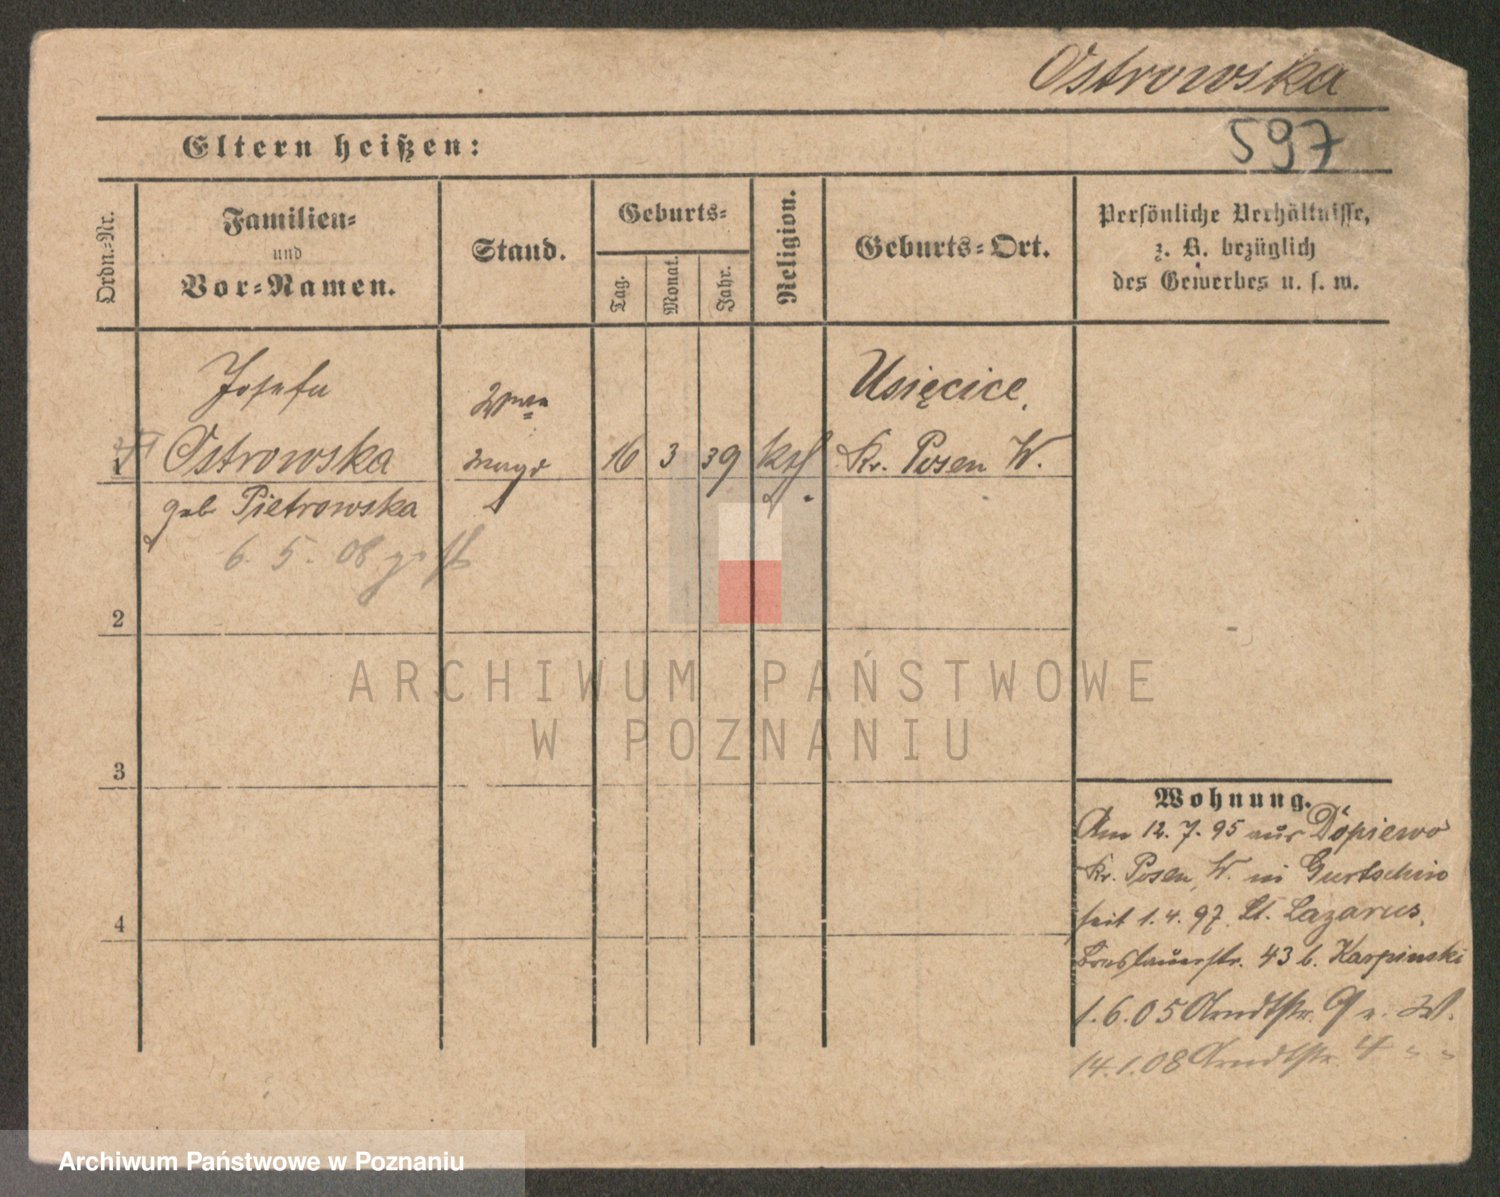 Ostrowska
597
Eltern heißen:
Ordn.-Nr.
Familien-
und
Vor-Namen.
Stand.
Geburts-
Tag.
Monat.
Jahr.
Religion.
Geburts-Ort.
Persönliche Verhältnisse,
z. B. bezüglich
des Gewerbes u. s. w.
Josefa
Ostrowska
geb Pietrowska
6. 5. 08 gest
Wwe
16 3 39 kath.
Usięcice,
Kr. Posen W.
1
2
3
4
Wohnung.
Am 12. 7. 95 aus Dopiewo
Kr. Posen W. in Gurtschin
seit 1. 4. 97. St. Lazarus,
Breslauerstr. 43 b. Karpinski
1. 6. 05 Arndtstr. 9 W.
14. 1. 08 Arndtstr. 4 " "
ARCHIWUM PAŃSTWOWE
W POZNANIU
Archiwum Państwowe w Poznaniu